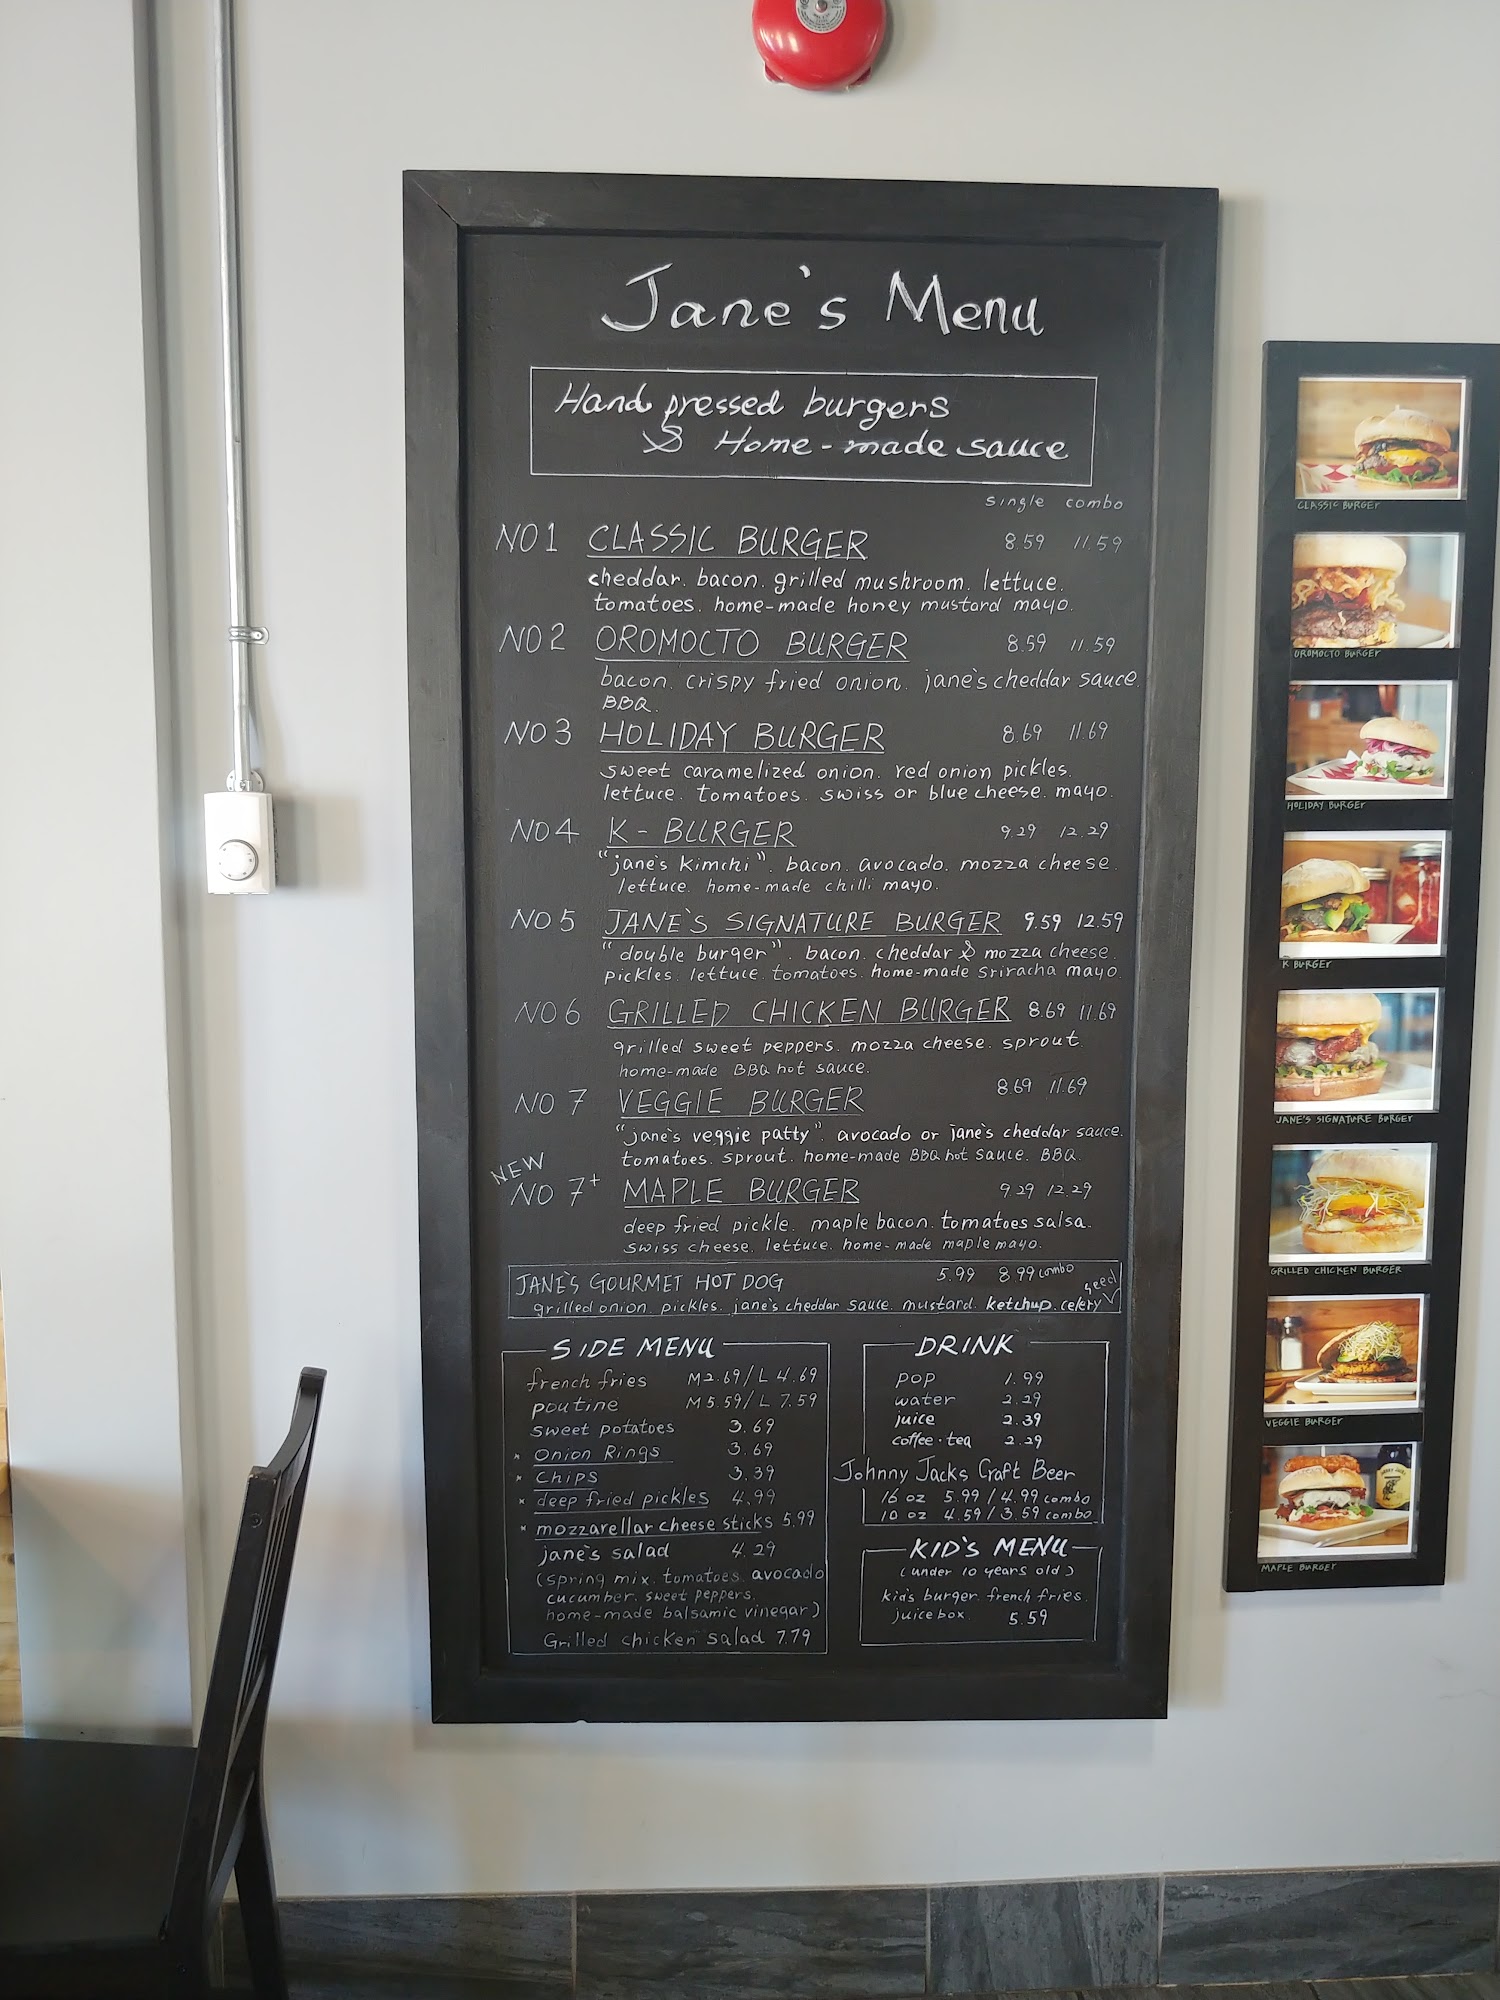 Jane's Menu
Hand pressed burgers
& Home-made sauce
single combo
NO 1 CLASSIC BURGER 8.59 11.59
cheddar. bacon. grilled mushroom. lettuce.
tomatoes. home-made honey mustard mayo.
NO 2 OROMOCTO BURGER 8.59 11.59
bacon. crispy fried onion. jane's cheddar sauce.
BBQ.
NO 3 HOLIDAY BURGER 8.69 11.69
sweet caramelized onion. red onion pickles.
lettuce. tomatoes. swiss or blue cheese. mayo.
NO 4 K-BURGER 9.29 12.29
"jane's kimchi". bacon. avocado. mozza cheese.
lettuce. home-made chilli mayo.
NO 5 JANE'S SIGNATURE BURGER 9.59 12.59
"double burger". bacon. cheddar & mozza cheese.
pickles. lettuce. tomatoes. home-made sriracha mayo.
NO 6 GRILLED CHICKEN BURGER 8.69 11.69
grilled sweet peppers. mozza cheese. sprout.
home-made BBQ hot sauce.
NO 7 VEGGIE BURGER 8.69 11.69
"jane's veggie patty". avocado or jane's cheddar sauce.
tomatoes. sprout. home-made BBQ hot sauce. BBQ.
NEW
NO 7+ MAPLE BURGER 9.29 12.29
deep fried pickle. maple bacon. tomatoes salsa.
swiss cheese. lettuce. home-made maple mayo.
JANE'S GOURMET HOT DOG 5.99 8.99 combo
grilled onion. pickles. jane's cheddar sauce. mustard. ketchup. celery seed
SIDE MENU
french fries M 2.69/L 4.69
poutine M 5.59/L 7.59
sweet potatoes 3.69
* Onion Rings 3.69
* Chips 3.39
* deep fried pickles 4.99
* mozzarellar cheese sticks 5.99
jane's salad 4.29
(spring mix. tomatoes. avocado
cucumber. sweet peppers.
home-made balsamic vinegar)
Grilled chicken salad 7.79
DRINK
pop 1.99
water 2.29
juice 2.39
coffee·tea 2.29
Johnny Jacks Craft Beer
16 oz 5.99/4.99 combo
10 oz 4.59/3.59 combo
KID'S MENU
(under 10 years old)
kids burger. french fries.
juice box. 5.59
CLASSIC BURGER
OROMOCTO BURGER
HOLIDAY BURGER
K BURGER
JANE'S SIGNATURE BURGER
GRILLED CHICKEN BURGER
VEGGIE BURGER
MAPLE BURGER